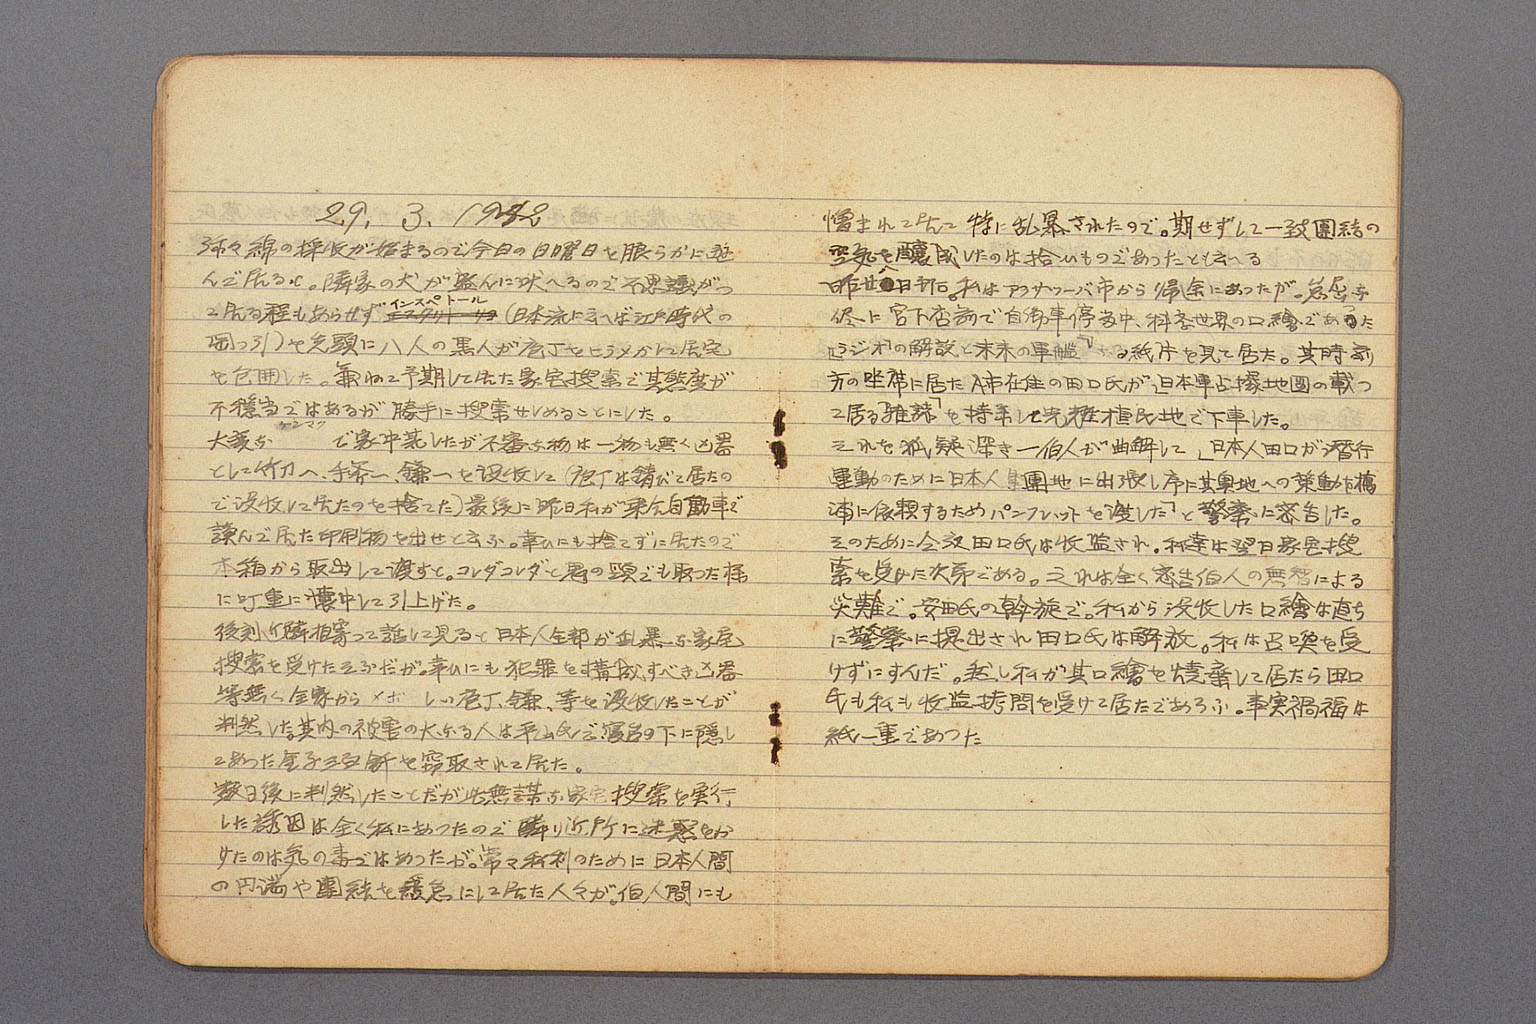 29. 3. 1942
弥々綿の採收が始まるので今日の日曜日を賑らかに遊
んで居ると。隣家の犬が盛んに吠へるので不思議がつ
て居る程もあらせず インスペトール (日本流に云へば江戸時代の
岡っ引)を先頭に八人の黒人が庖丁をヒラメかして居宅
を包囲した。兼ねて予期して居た家宅搜索で其態度が
不穏当ではあるが勝手に搜索せしめることにした。
大袈さ ケンマク で家中荒したが不審な物は一物も無く凶器
として竹刀一、手斧一、鎌一を没收して(庖丁は錆びて居たの
で没收して居たのを捨てた)最後に昨日私が乗合自動車で
読んで居た印刷物を出せと云ふ。幸ひにも捨てずに居たので
本箱から取出して渡すと。コレダコレダと鬼の頸でも取った様
に叮重に懐中して引上げた。
後刻近隣相寄って話して見ると日本人全部が乱暴な家宅
搜索を受けたそふだが。幸ひにも犯罪を構成すべき凶器
等無く全家からメボしい庖丁、鎌、等を没收したことが
判然した其内の被害の大なる人は平山氏で寝台の下に隠し
てあった金子 を窃取されて居た。
数日後に判然したことだが此無謀な家宅搜索を実行
した誘因は全く私にあつたので隣り近所に迷惑をか
けたのは気の毒ではあつたが。常々私利のために日本人間
の円満や團結を緩怠にして居た人々が。伯人間にも
憎まれて居て特に乱暴されたので。期せずして一致團結の
空気を醸成したのは拾いものであつたとも云へる
昨廿八日午后。私はアラサツーバ市から帰途にあつたが。怠屈な
侭に宮下店前で自働車停車中、科学世界の口繪であった
「ラジオの解説と未来の軍艦」なる紙片を見て居た。其時前
方の坐席に居たA市在住の田口氏が、日本軍占據地圖の載つ
て居る「雑誌」を持参して光輝植民地で下車した。
それを狐疑深き一伯人が曲解して「日本人田口が潜行
運動のために日本人集團地に出張し序に其奥地への策動を橋
浦に依頼するためパンフレットを渡した」と警察に密告した。
そのために今夜田口氏は收監され。私達は翌日家宅搜
索を受けた次第である。之れは全く密告伯人の無智による
災難で。安田氏の斡旋で。私から没收した口繪は直ち
に警察に提出され田口氏は解放。私は召喚を受
けずにすんだ。然し私が其口繪を焼棄して居たら田口
氏も私も收監拷問を受けて居たであろふ。事実禍福は
紙一重であつた